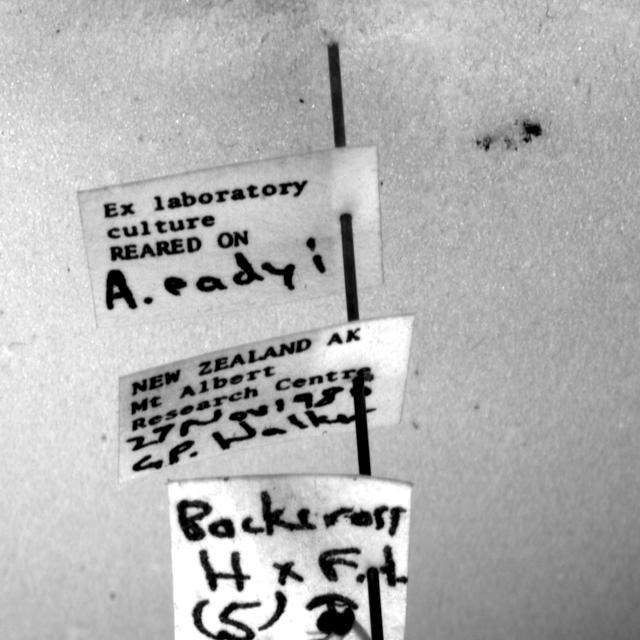 Ex laboratory
culture
REARED ON
A. eadyi
NEW ZEALAND AK
Mt Albert
Research Centre
27 Nov
Backcross
H x F.1
(5)